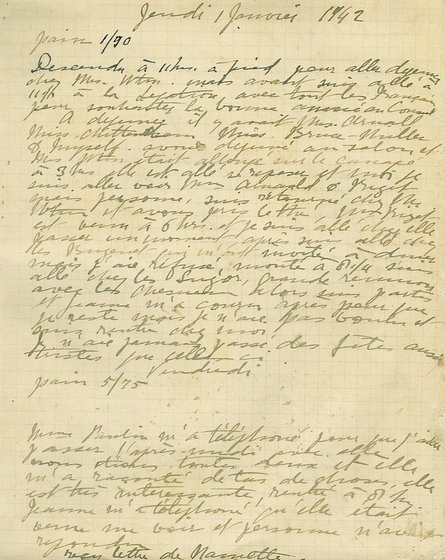 Jeudi 1 Janvier 1942
pain 1/90
Descendu à 11 hrs. à pied pour aller dejeuner
chez Mrs. Wtm. mais avant suis allé à
11½ à la legation avec tout les Français
pour souhaiter la bonne année au Consul
A dejeuner il y avait Mrs. Arnold
Miss Chittendam Miss Bruce-Muller
& Myself. avons dejeuné au salon et
Mrs Wtm. etait allongé sur le canapé
à 3 hrs elle est allé se reposer et moi je
suis aller voir Mme Arnold & Puget
mais personne, suis retourné chez Mrs
Wtm et avons pris le thé, Mme Puget
est venu à 6 hrs. et je suis allé chez elle
passer un moment, après suis allé chez
les qui m'ont invité à diner
mais j'ai refusé, monté à 8¼ suis
allé chez les Suzor, grande reunion
avec les Chesnais, ils sont partis
et Jeanne m'a couru après pour que
je reste mais je n'ai pas voulu et
suis rentré chez moi
Je n'ai jamais passé des fêtes aussi
tristes que celles ci.
Vendredi
pain 5/75
Mme m'a téléphoné pour que j'aille
passer l'après-midi avec elle
nous étions toutes deux et elle
m'a raconté de tas de choses, elle
est très interessante, rentré à 8 hrs
Jeanne m'a téléphoné qu'elle était
venue me voir et personne n'avait
repondu
reçu lettre de Nanette